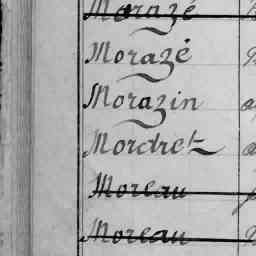 Morazé
Morazé
Morazin
Mordret
Moreau
Moreau